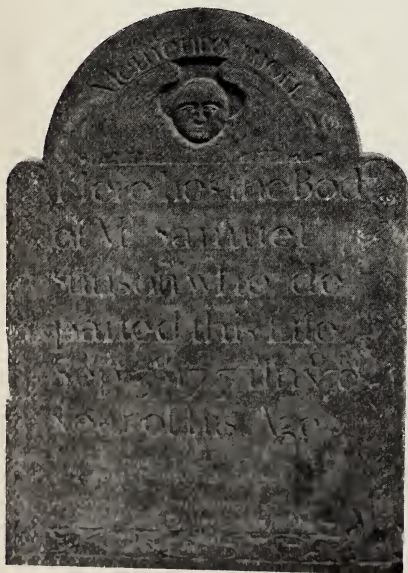 Memento mori
Here lies the Bod
of Mr Samuel
Stinson who de
parted this Life
Sept
Year of his Age